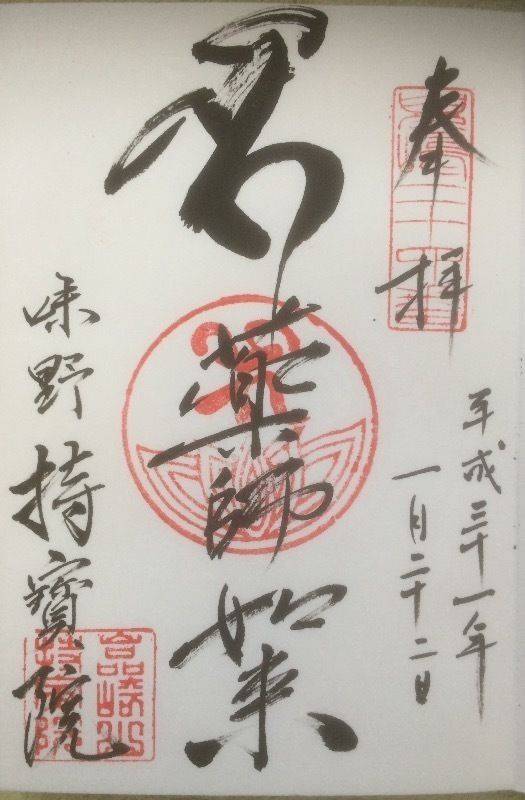 奉拝
平成三十一年
一月二十二日
薬師如来
味野持寳院